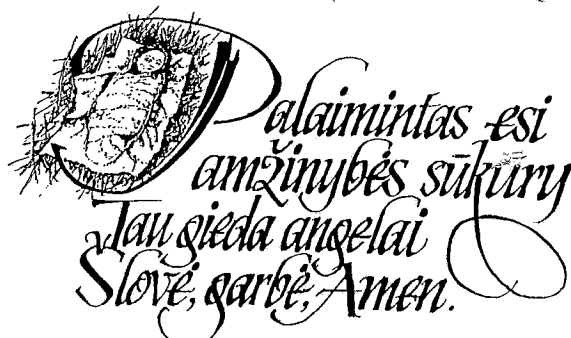 Palaimintas esi
amžinybės sūkūry
Tau gieda angelai
Šlovė, garbė, Amen.